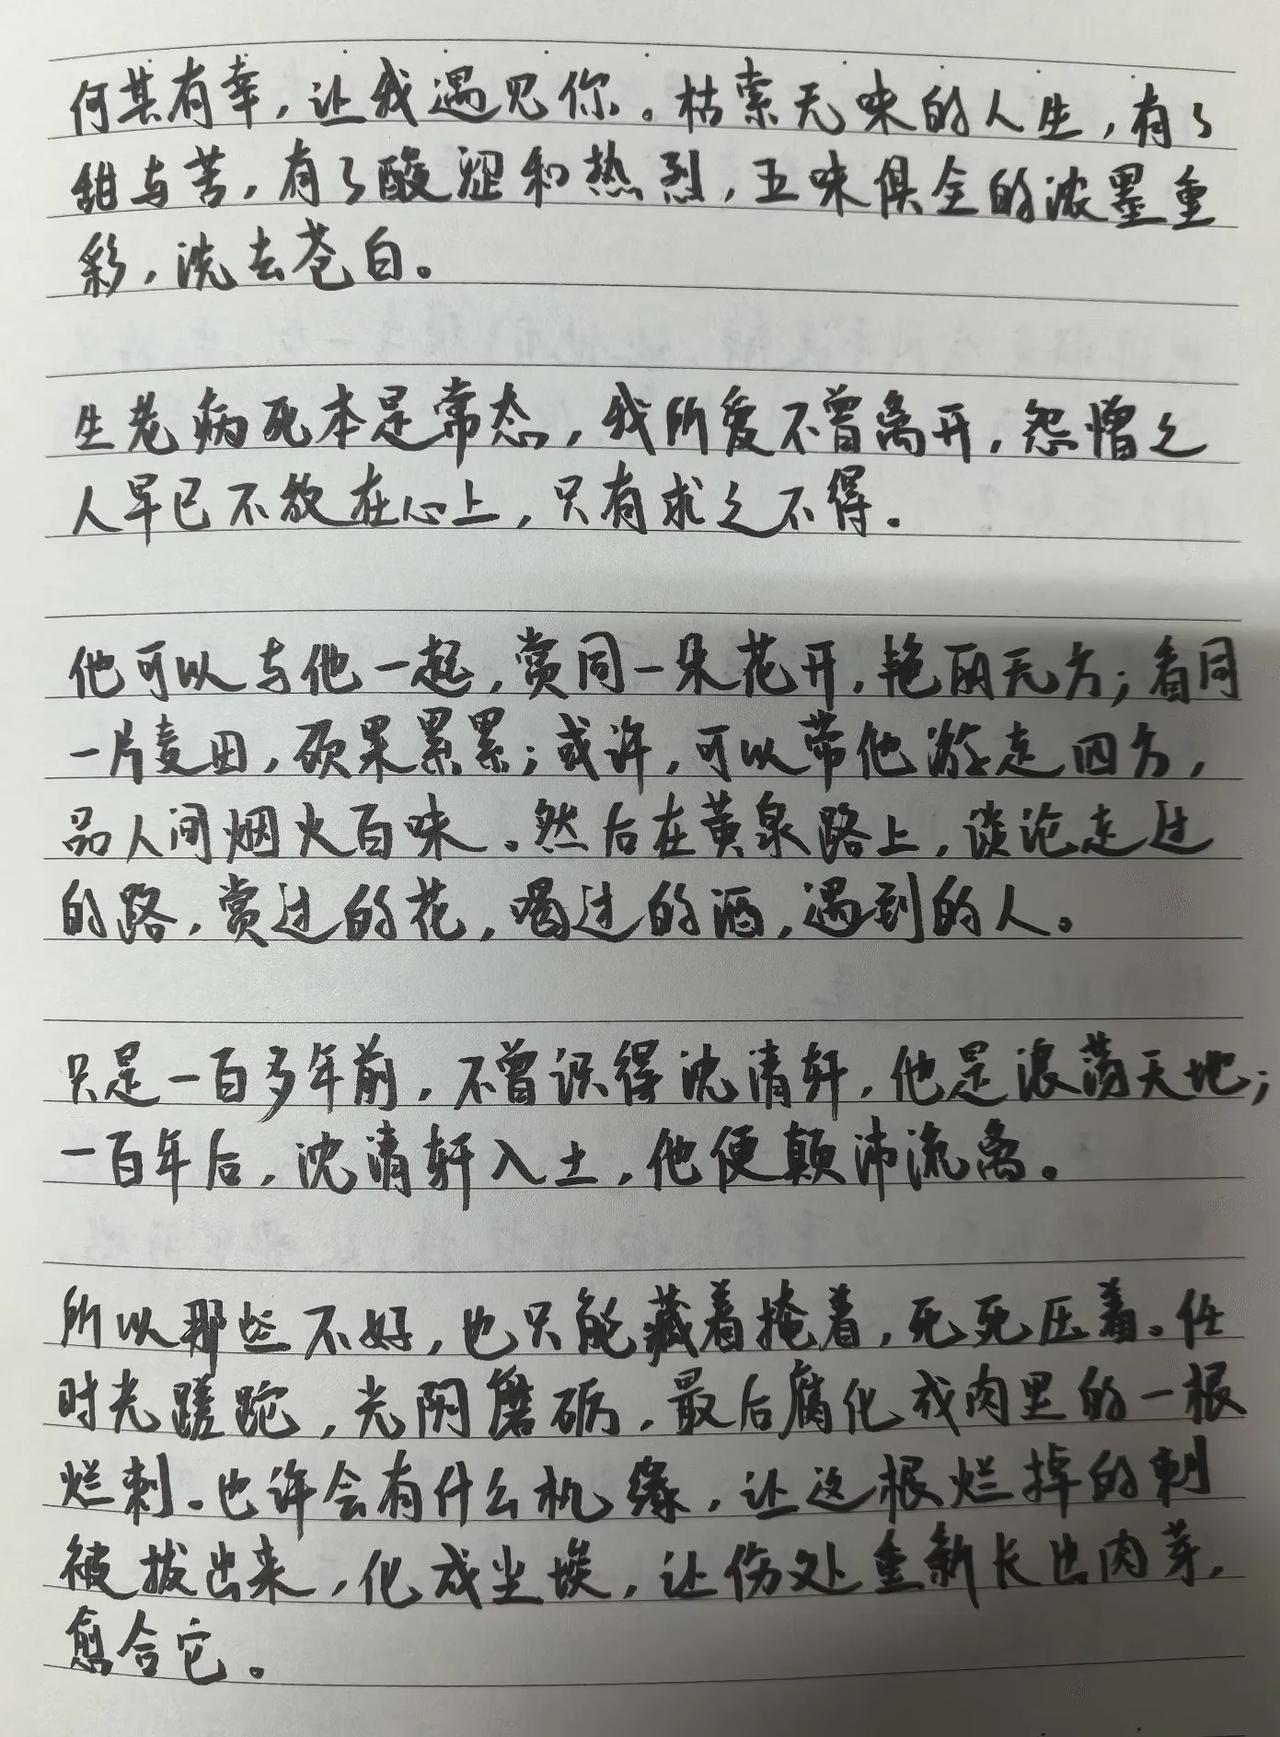 何其有幸，让我遇见你。枯索无味的人生，有了
甜与苦，有了酸涩和热烈，五味俱全的浓墨重
彩，洗去苍白。
生老病死本是常态，我所爱不曾离开，怨憎之
人早已不放在心上，只有求之不得。
他可以与他一起，赏同一朵花开，艳丽无方；看同
一片麦田，硕果累累；或许，可以带他游走四方，
品人间烟火百味。然后在黄泉路上，谈论走过
的路，赏过的花，喝过的酒，遇到的人。
只是一百多年前，不曾识得沈清轩，他是浪荡天地；
一百年后，沈清轩入土，他便颠沛流离。
所以那些不好，也只能藏着掩着，死死压着。任
时光蹉跎，光阴磨砺，最后腐化成肉里的一根
烂刺。也许会有什么机缘，让这根烂掉的刺
被拔出来，化成尘埃，让伤处重新长出肉芽，
愈合它。